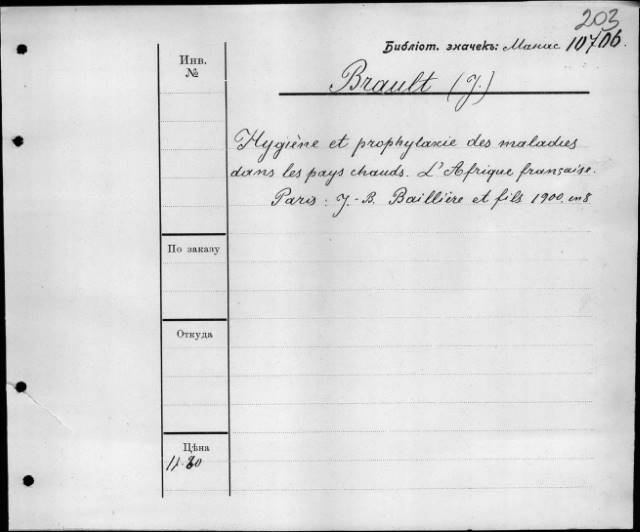 203
Библіот. значекъ: 10706.
Инв. №
Brault (J.)
Hygiène et prophylaxie des maladies
dans les pays chauds. L'Afrique française.
Paris: J.-B. Baillière et fils 1900. in 8
По заказу
Откуда
Цѣна